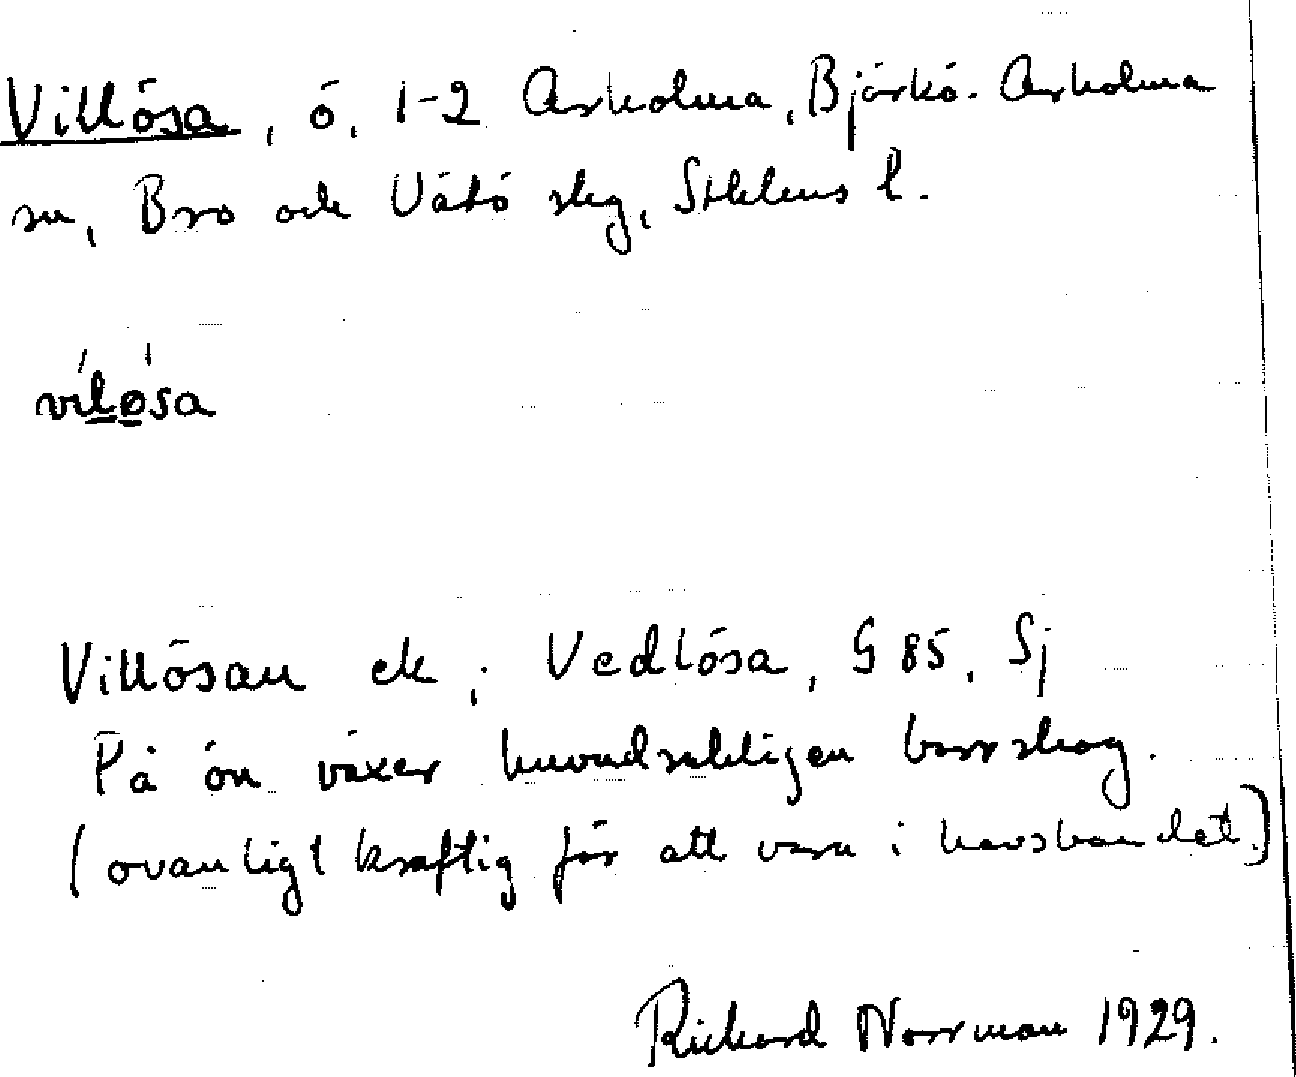 Villösa, ö, 1-2 Arholma, Björkö-Arholma
sn, Bro och Vätö slg, Sthlms l.
viløsa
Villösan ek; Vedlösa, G 85, Sj
På ön växer huvudsakligen barrskog.
(ovanligt kraftig för att vara i havsbandet.)
Richard Norrman 1929.